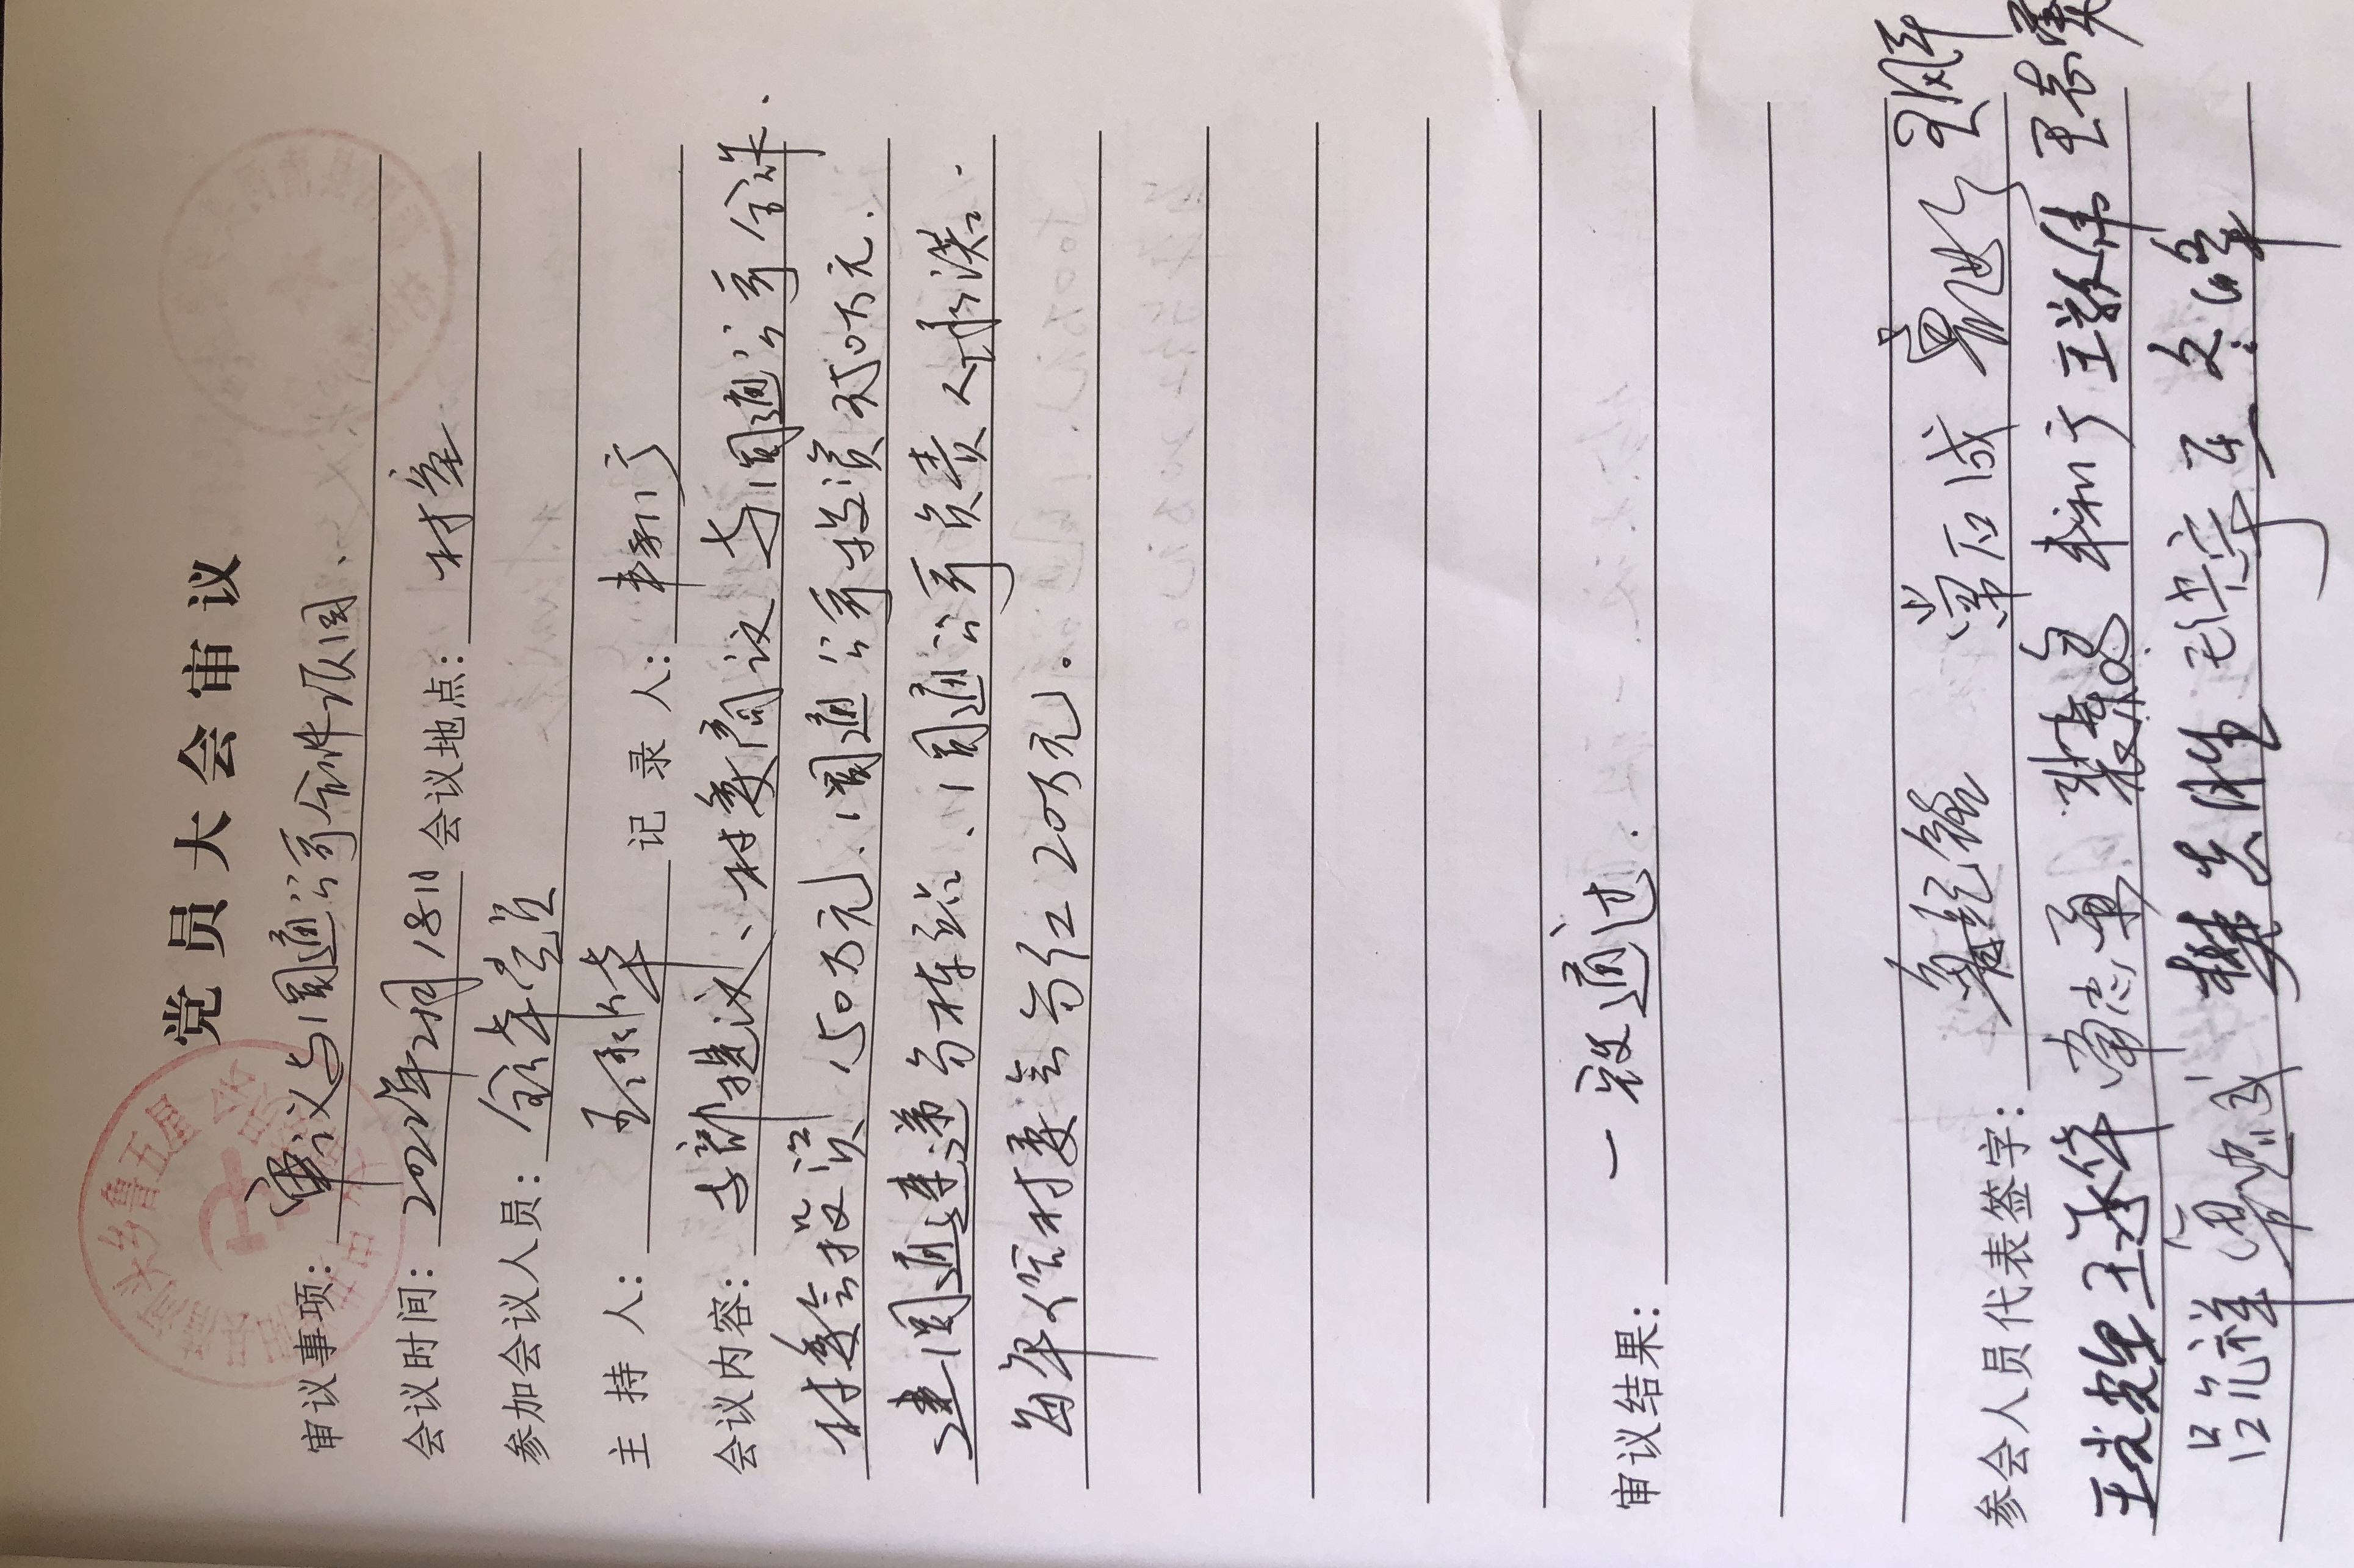 党员大会审议
审议事项: 审议与圆通公司合作项目、
会议时间: 2022年2月18日 会议地点: 村室
参加会议人员: 全体党员
主持人: 王承华 记录人: 丰利宁
会议内容: 支部提议、村委商议与圆通公司合作.
村委会投资150万元、圆通公司投资350万元.
建圆通速递分栋站、圆通公司负责人承诺.
每年给村委会分红20万元。
审议结果: 一致通过.
参会人员代表签字: 常石成
王承华 丰利宁 王敬伟 王志勇
吕允祥 樊志胜 王冬峰
清河头乡鲁五星